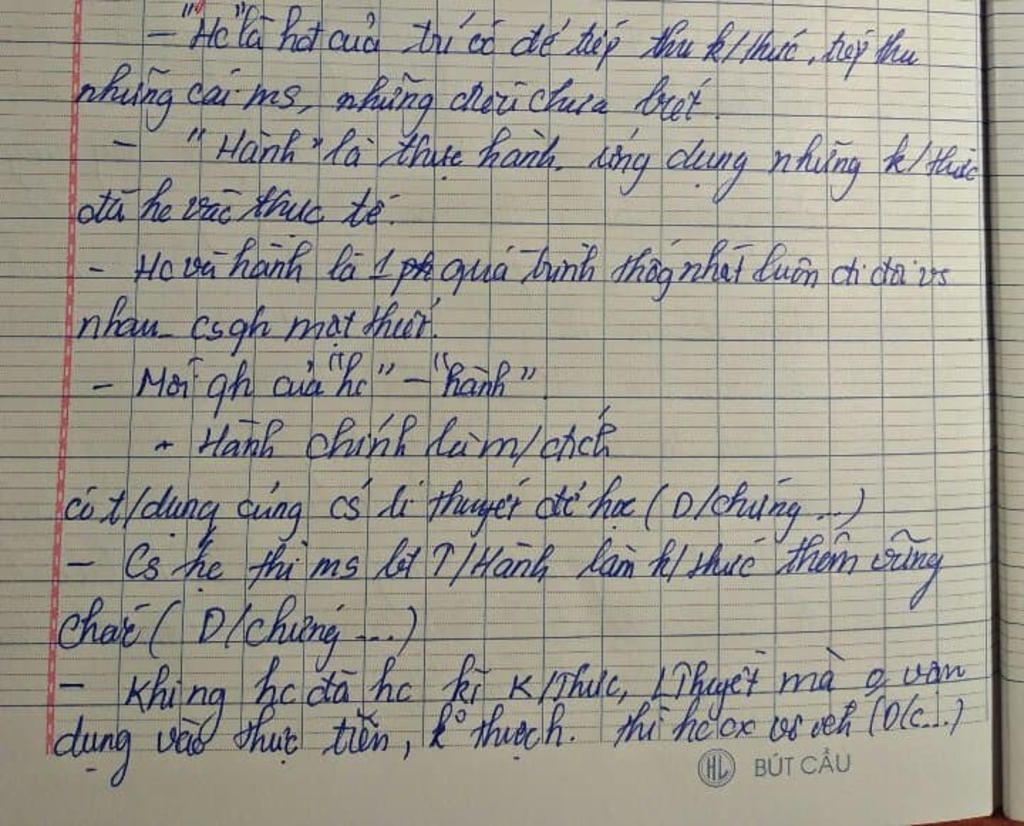 - "Hc" là hđ của trí óc để tiếp thu k/thức, tiếp thu
những cái ms, những điều chưa biết.
- "Hành" là thực hành. ứng dụng những k/thức
đã hc vào thực tế.
- Hc và hành là 1 quá trình thốg nhất luôn đi đôi vs
nhau csqh mật thiết.
- Mối qh của "hc" - "hành".
+ Hành chính là m/đích
có t/dụng củng cố lí thuyết để học (D/chứng ...)
- Cs hc thì ms bt T/Hành làm k/thức thêm vững
chắc ( D/chứng ...)
- Khi ng hc đã hc kĩ K/Thức, LThuyết mà vận
dụng vào thực tiễn, k° thực h. thì hc cx vs ích (D/c...)
HL BÚT CẦU